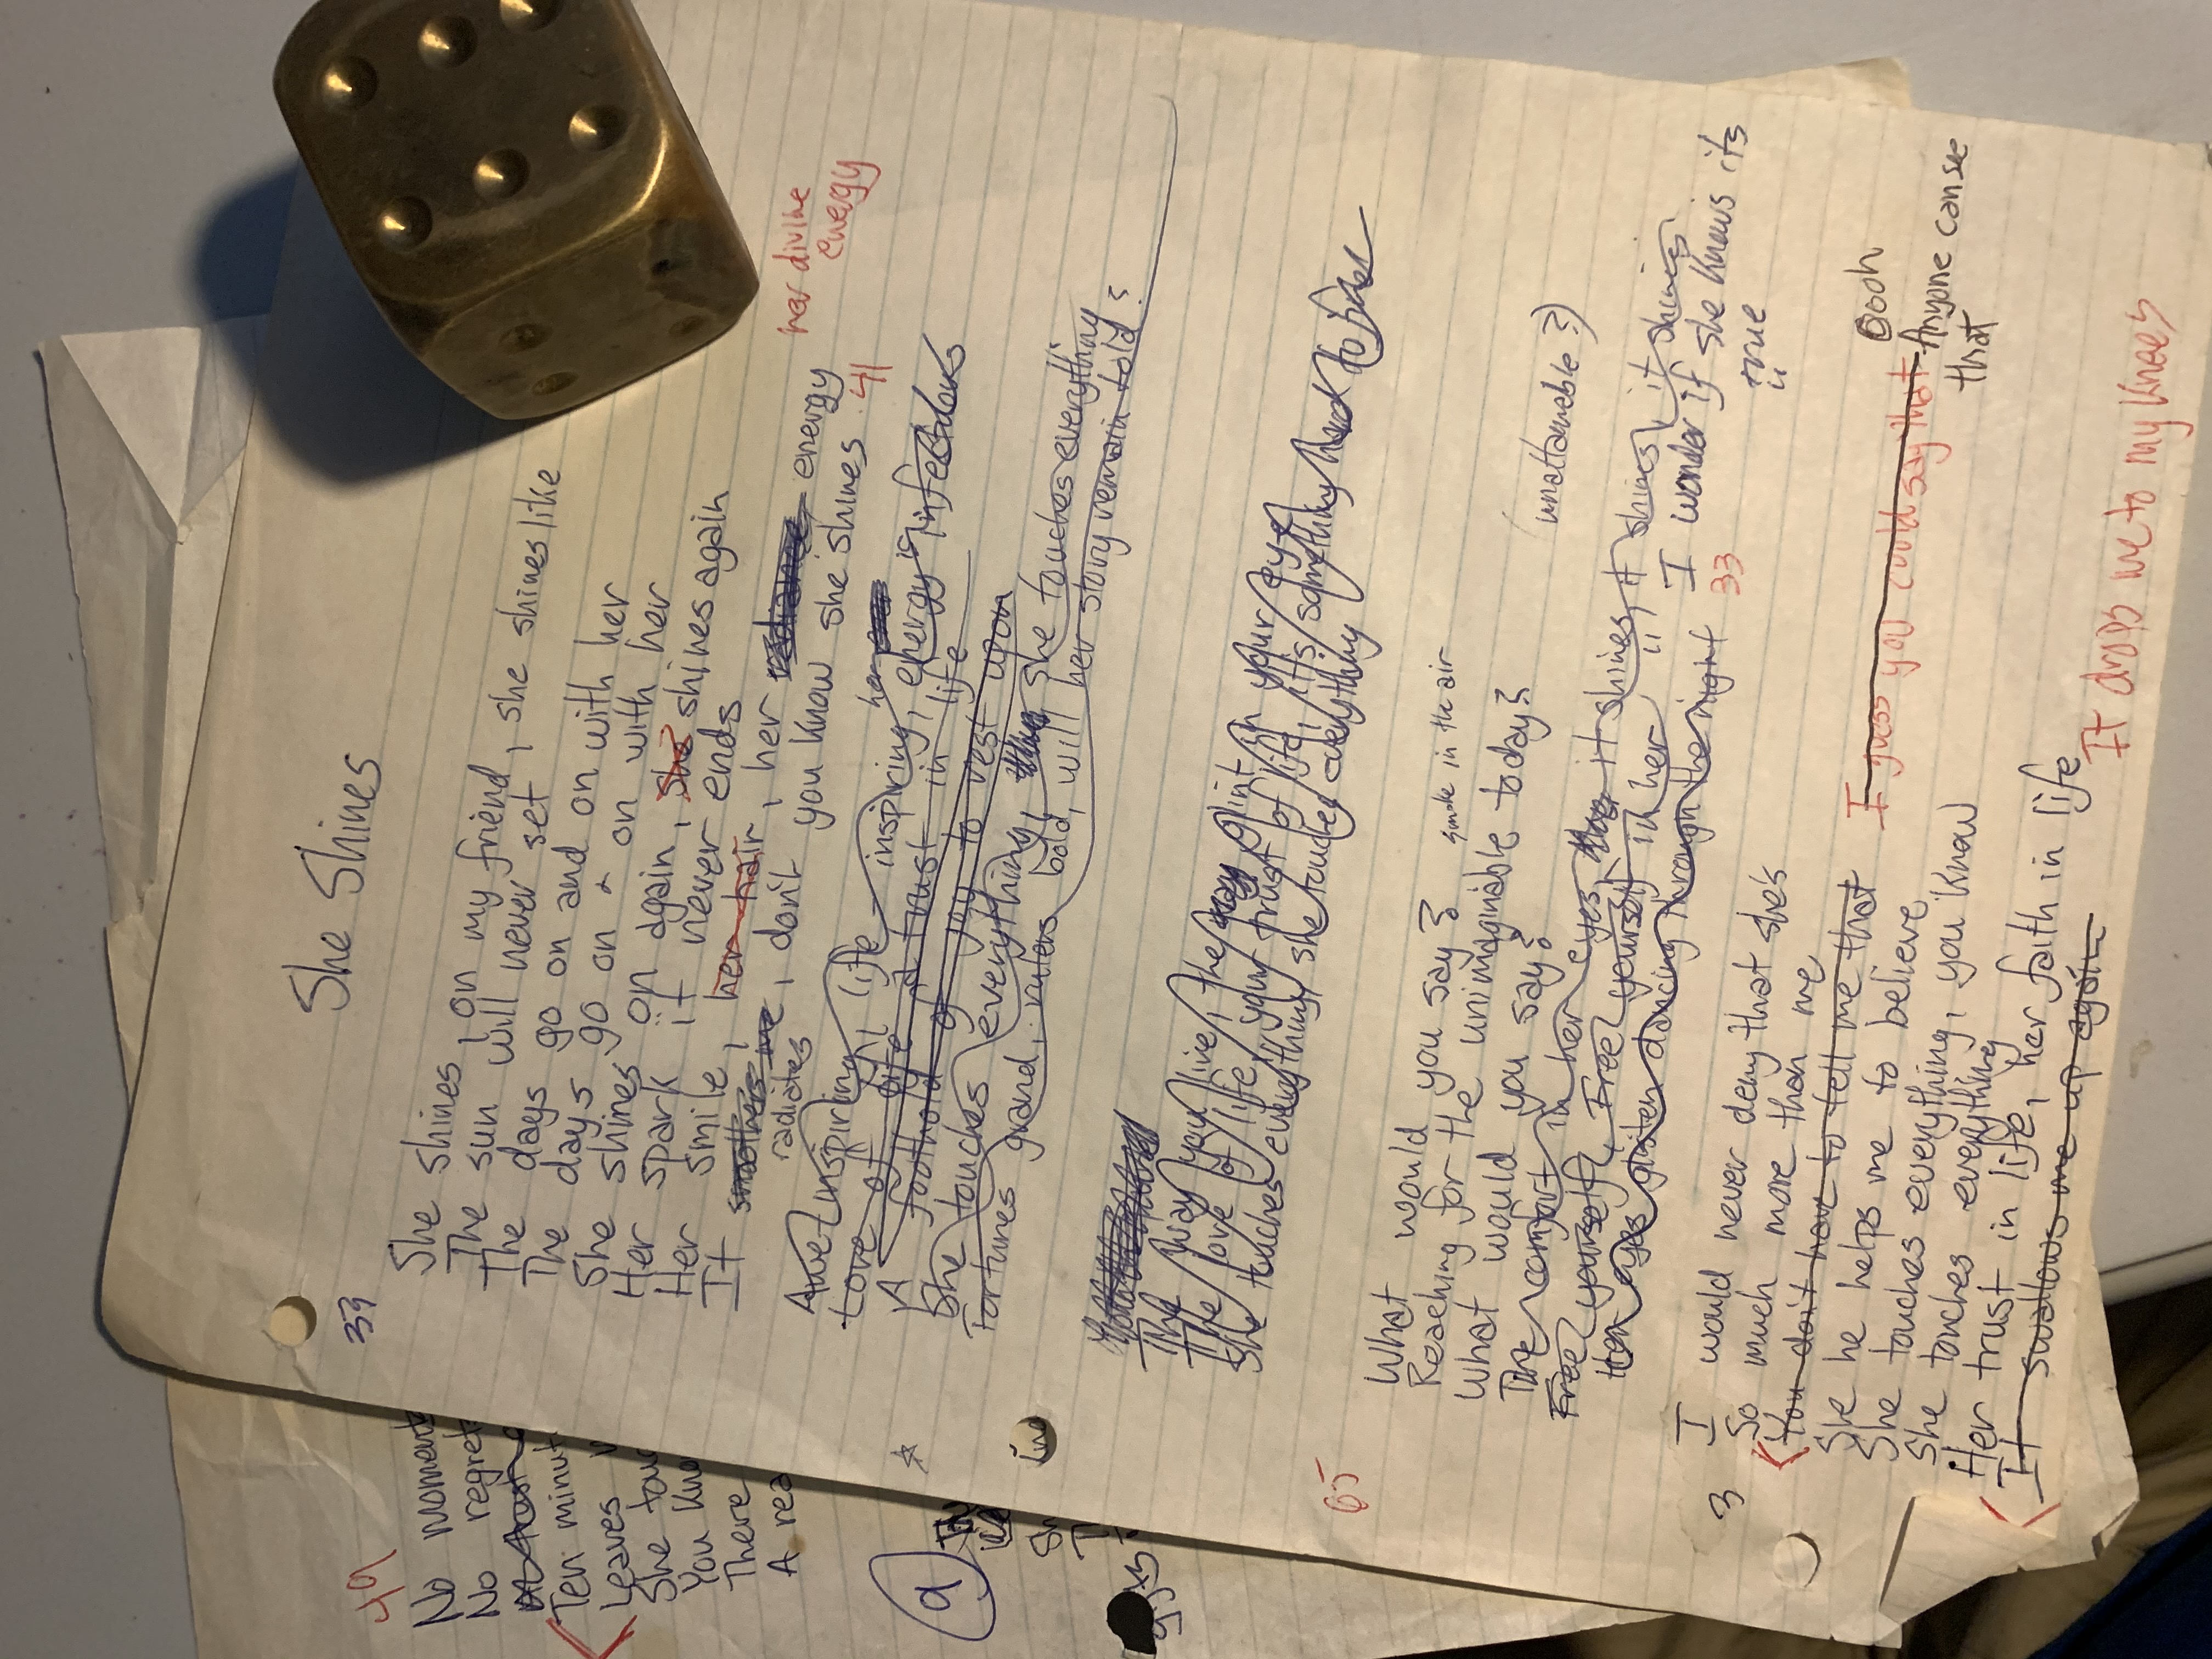 She Shines
39
She shines, on my friend, she shines like
The sun will never set
The days go on and on with her
The days go on & on with her
She shines on again, she shines again
Her spark it never ends
Her smile, her hair, her radiance energy
her divine energy
It smothers me, I don't you know she shines 41
radiates
Awe inspiring life inspiring, her energy is infectious
Love of life
A foothold of a trust in life
She touches everything of joy to rest upon
Fortunes grand, vaults bold, she touches everything
will her story remain told?
The way you live, the glint in your eye
The love of life, your trust of life, it's something hard to find
She touches everything, she touches everything
65
What would you say? smoke in the air
Reaching for the unimaginable today?
What would you say? (unattainable?)
The comfort in her eyes, it shines, it shines, it shines
Free yourself, Free yourself in her
Her eyes glisten dancing through the night I wonder if she knows its
true
33
3 I would never deny that she's
So much more than me
You don't have to tell me that I guess you could say that Oooh
Anyone can see
that
She he helps me to believe
She touches everything, you know
She touches everything
Her trust in life, her faith in life
It swallows me up again It drops me to my knees
49
No
No regret
Ten minut
Leaves
She tou
You kno
There
A rea
a